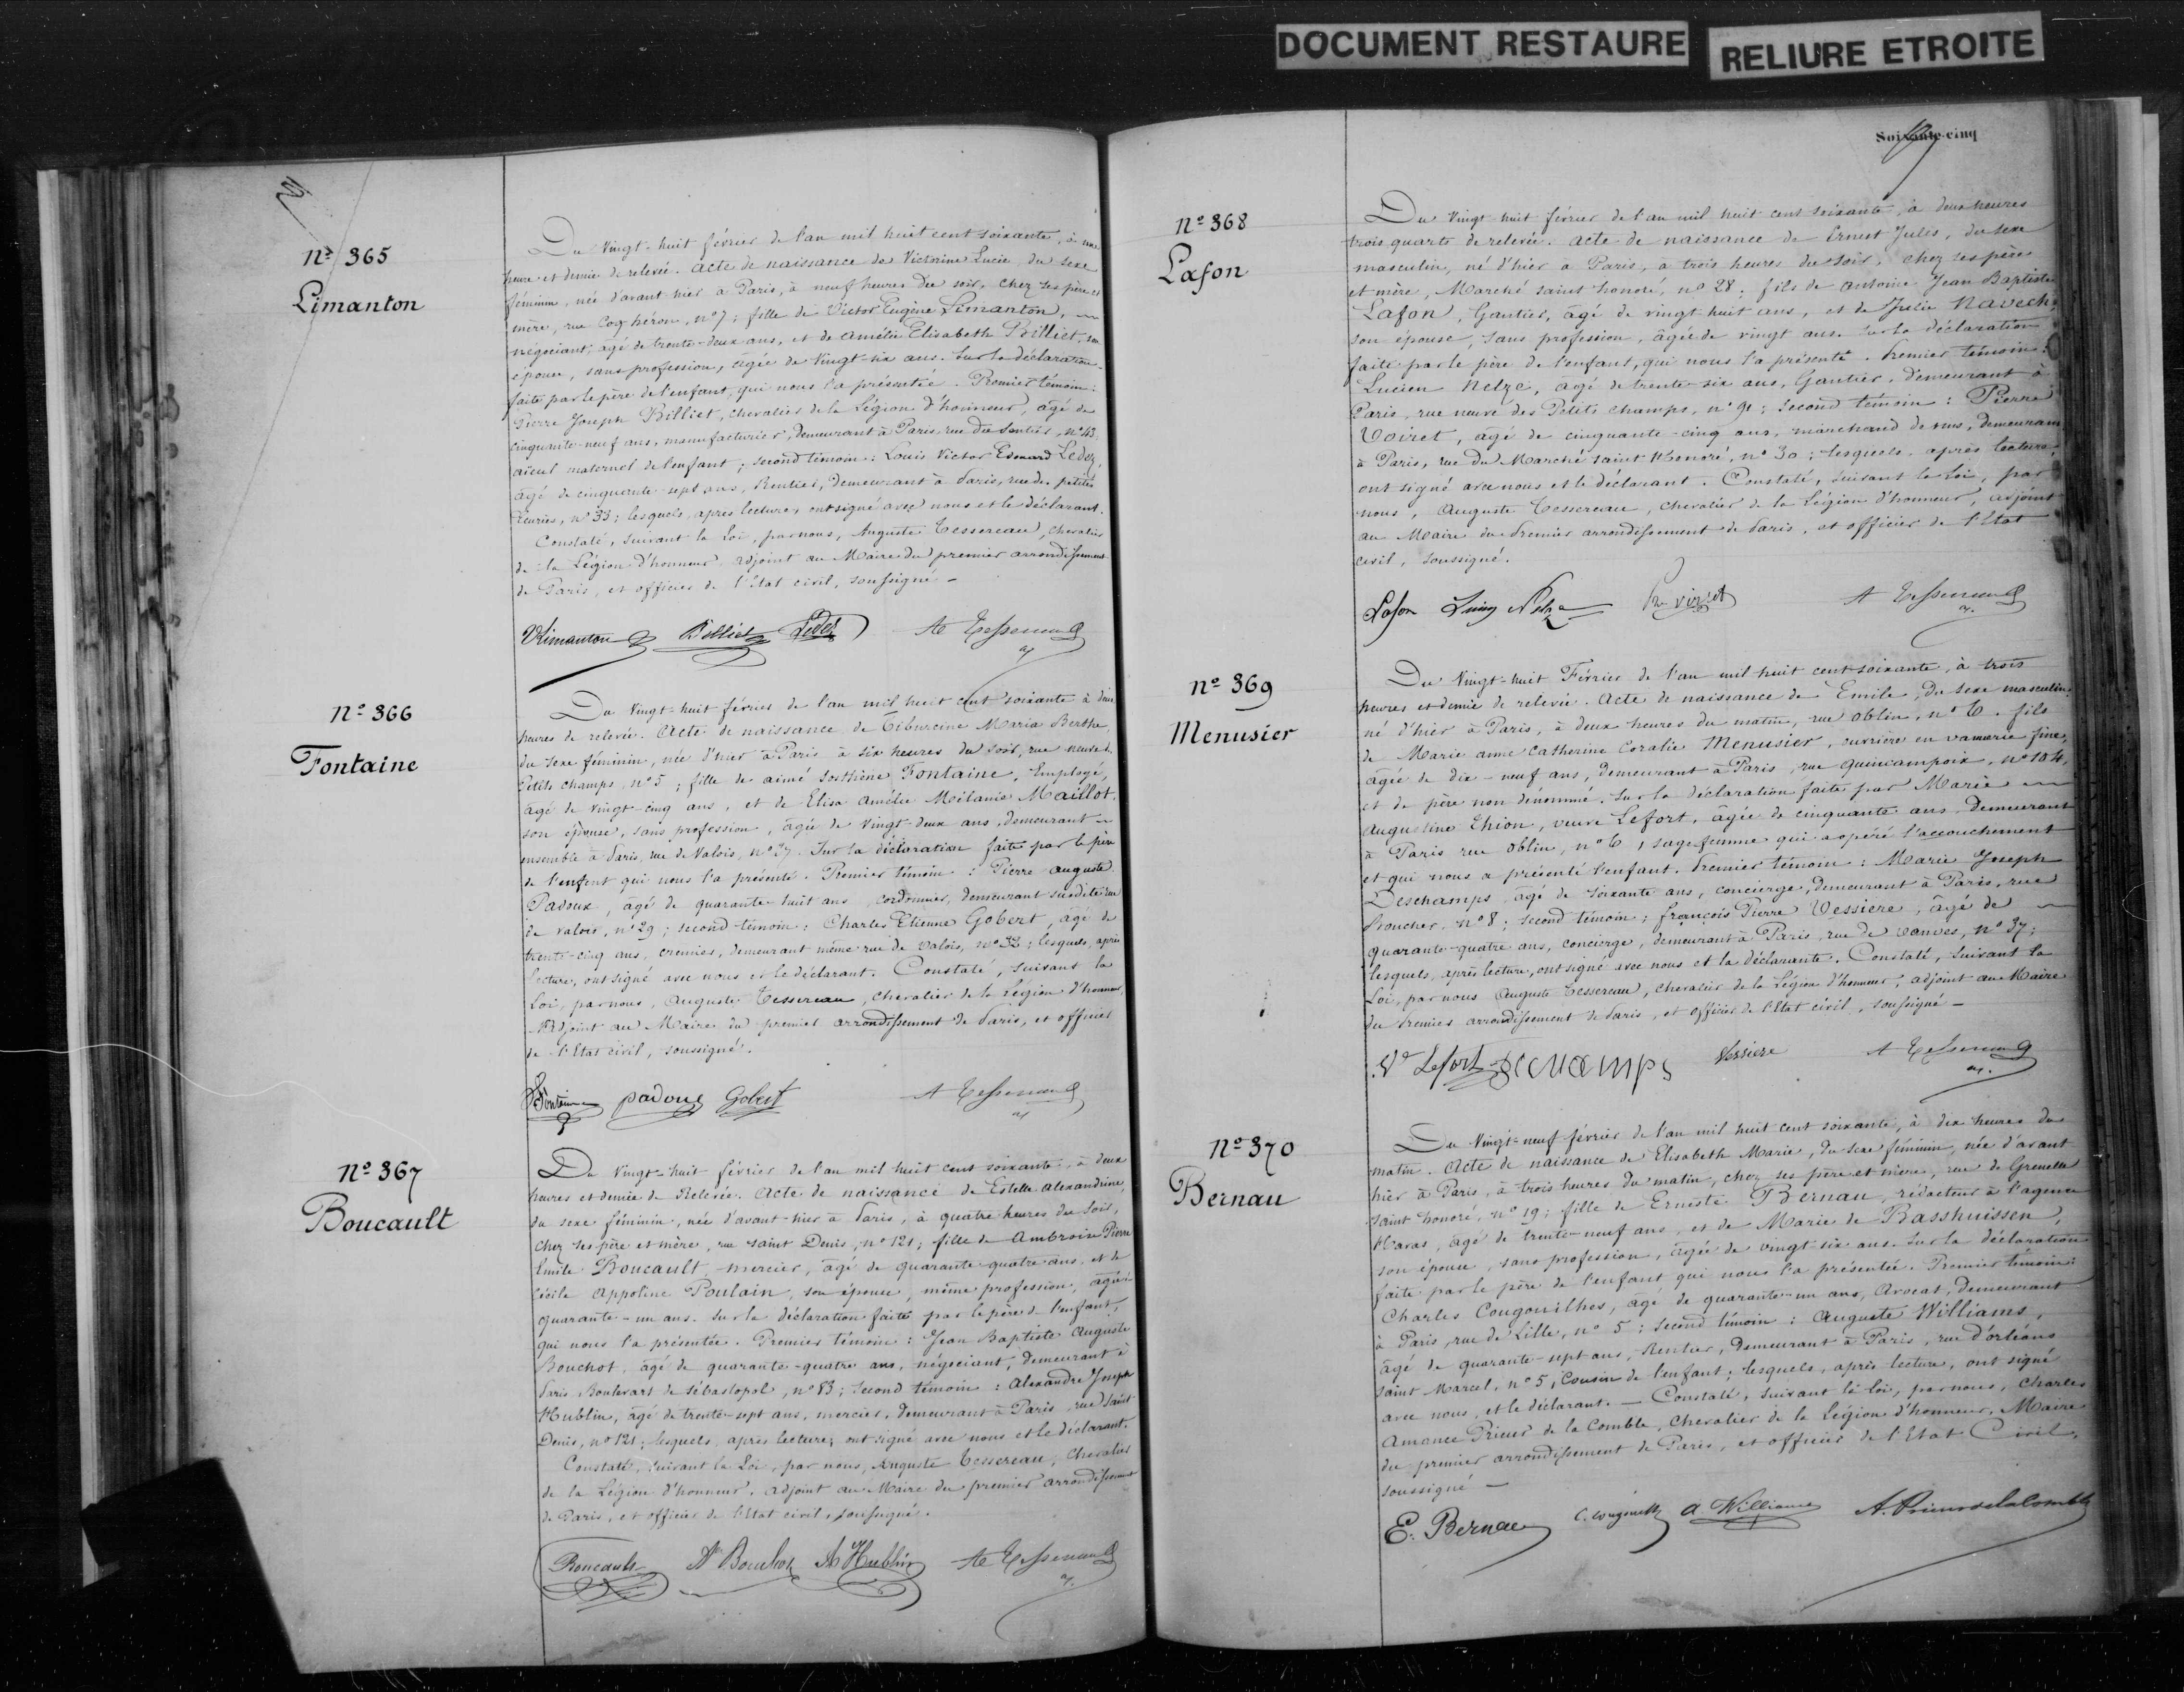 DOCUMENT RESTAURE
RELIURE ETROITE
Nº 365
Limanton
Du vingt-huit février de l'an mil huit cent soixante, à une
heure et demie de relevée. Acte de naissance de Victorine Lucie, du sexe
féminin, née d'avant-hier à Paris, à neuf heures du soir, chez ses père et
mère, rue Coq-héron, nº 7; fille de Victor Eugène Limanton,
négociant, âgé de trente-deux ans, et de Amélie Elisabeth Billiet, son
épouse, sans profession, âgée de vingt-six ans. Sur la déclaration
faite par le père de l'enfant, qui nous l'a présentée. Premier témoin:
Pierre Joseph Billiet, chevalier de la Légion d'honneur, âgé de
cinquante-neuf ans, manufacturier, demeurant à Paris, rue du Sentier, nº 43;
aïeul maternel de l'enfant; second témoin: Louis Victor Edouard Ledez,
âgé de cinquante-sept ans, Rentier, demeurant à Paris, rue des petites
Ecuries, nº 33; lesquels, après lecture, ont signé avec nous et le déclarant.
Constaté, suivant la Loi, par nous, Auguste Tessereau, chevalier
de la Légion d'honneur, adjoint au Maire du premier arrondissement
de Paris, et officier de l'état civil, soussigné -
VLimanton Billiet Ledez A Tessereau
Nº 366
Fontaine
Du vingt-huit février de l'an mil huit cent soixante à deux
heures de relevée. Acte de naissance de Tiburcine Maria Berthe,
du sexe féminin, née d'hier à Paris à six heures du soir, rue neuve d.
Petits champs, nº 5; fille de aimé Sosthène Fontaine, Employé,
âgé de vingt-cinq ans, et de Elisa Amélie Mélanie Maillot,
son épouse, sans profession, âgée de vingt-deux ans, demeurant
ensemble à Paris, rue de Valois, nº 27. Sur la déclaration faite par le père
de l'enfant qui nous l'a présenté. Premier témoin: Pierre auguste
Padoux, âgé de quarante-huit ans, cordonnier, demeurant susdite rue
de valois, nº 29; second témoin: Charles Etienne Gobert, âgé de
trente-cinq ans, cremier, demeurant même rue de Valois, nº 33; lesquels, après
lecture, ont signé avec nous et le déclarant. Constaté, suivant la
Loi, par nous, Auguste Tessereau, chevalier de la Légion d'honneur,
Adjoint au Maire du premier arrondissement de Paris, et officier
de l'Etat civil, soussigné.
Fontaine padoux Gobert A Tessereau
Nº 367
Boucault
Du vingt-huit février de l'an mil huit cent soixante, à deux
heures et demie de Relevée. Acte de naissance de Estelle alexandrine,
du sexe féminin, née d'avant-hier à Paris, à quatre heures du soir,
chez ses père et mère, rue saint Denis, nº 121; fille de Ambroise Pierre
Emile Boucault, mercier, âgé de quarante-quatre ans, et de
Cécile Appoline Poulain, son épouse, même profession, âgée
quarante-un ans. Sur la déclaration faite par le père de l'enfant,
qui nous l'a présentée. Premier témoin: Jean Baptiste Auguste
Bouchot, âgé de quarante-quatre ans, négociant, demeurant à
Paris Boulevart de Sébastopol, nº 83; second témoin: Alexandre Joseph
Hublin, âgé de trente-sept ans, mercier, demeurant à Paris, rue Saint
Denis, nº 121; lesquels, après lecture, ont signé avec nous et le déclarant.
Constaté, suivant la Loi, par nous, Auguste Tessereau, Chevalier
de la Légion d'honneur, adjoint au Maire du premier arrondissement
de Paris, et officier de l'état civil, soussigné.
Boucault A Bouchot A Hublin A Tessereau
Soixante-cinq
Nº 368
Lafon
Du vingt-huit février de l'an mil huit cent soixante, à deux heures
trois quarts de relevée. Acte de naissance de Ernest Jules, du sexe
masculin, né d'hier à Paris, à trois heures du soir, chez ses père
et mère, Marché saint honoré, nº 28; fils de Antoine Jean Baptiste
Lafon, Gantier, âgé de vingt-huit ans, et de Julie Navech,
son épouse, sans profession, âgée de vingt ans. Sur la déclaration
faite par le père de l'enfant, qui nous l'a présenté. Premier témoin:
Lucien Nelze, âgé de trente-six ans, Gantier, demeurant à
Paris, rue neuve des Petits champs, nº 91; second témoin: Pierre
Voiret, âgé de cinquante-cinq ans, marchand de vins, demeurant
à Paris, rue du Marché saint Honoré, nº 30; lesquels, après lecture,
ont signé avec nous et le déclarant. Constaté, suivant la Loi, par
nous, Auguste Tessereau, chevalier de la Légion d'honneur, adjoint
au Maire du Premier arrondissement de Paris, et officier de l'Etat
civil, soussigné.
Lafon Nelze A Tessereau
Nº 369
Menusier
Du Vingt-huit Février de l'an mil huit cent soixante, à trois
heures et demie de relevée. Acte de naissance de Emile, du sexe masculin,
né d'hier à Paris, à deux heures du matin, rue Oblin, nº 6. fils
de Marie anne Catherine Coralie Menusier, ouvrière en vannerie fine,
âgée de dix-neuf ans, demeurant à Paris, rue Quincampoix, nº 104,
et de père non dénommé. Sur la déclaration faite par Marie
Augustine Thion, veuve Lefort, âgée de cinquante ans, demeurant
à Paris rue Oblin, nº 6, sagefemme qui a opéré l'accouchement
et qui nous a présenté l'enfant. Premier témoin: Marie Joseph
Deschamps, âgé de soixante ans, concierge, demeurant à Paris, rue
Boucher, nº 8; second témoin; françois Pierre Vessiere, âgé de
quarante-quatre ans, concierge, demeurant à Paris, rue de Vanves, nº 37;
lesquels, après lecture, ont signé avec nous et la déclarante. Constaté, suivant la
Loi, par nous Auguste Tessereau, chevalier de la Légion d'honneur, adjoint au Maire
du Premier arrondissement de Paris, et officier de l'Etat civil, soussigné -
Ve Lefort Dechamps Vessiere A Tessereau
Nº 370
Bernau
Du Vingt-neuf février de l'an mil huit cent soixante, à dix heures du
matin. Acte de naissance de Elisabeth Marie, du sexe féminin, née d'avant
hier à Paris, à trois heures du matin, chez ses père et mère, rue de Grenelle
saint honoré, nº 19; fille de Erneste Bernau, rédacteur à l'agence
Havas, âgé de trente-neuf ans, et de Marie de Basshuissen,
son épouse, sans profession, âgée de vingt-six ans. Sur la déclaration
faite par le père de l'enfant qui nous l'a présentée. Premier témoin:
Charles Cougouilhes, âgé de quarante-un ans, Avocat, demeurant
à Paris, rue de Lille, nº 5; second témoin: Auguste Williams,
âgé de quarante-sept ans, Rentier, demeurant à Paris, rue d'orléans
saint Marcel, nº 5, Cousin de l'enfant; lesquels, après lecture, ont signé
avec nous, et le déclarant. — Constaté, suivant la loi, par nous, Charles
Amance Prieur de la Comble, chevalier de la Légion d'honneur, Maire
du premier arrondissement de Paris, et officier de l'Etat Civil,
soussigné —
E. Bernau A. Williams A. Prieur de la Comble